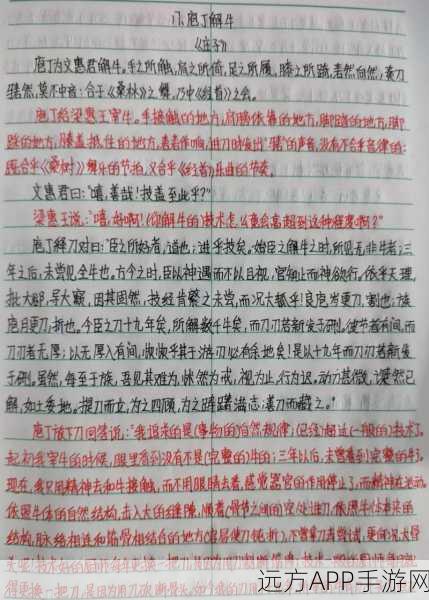 17、庖丁解牛
《庄子》
庖丁为文惠君解牛。手之所触，肩之所倚，足之所履，膝之所踦，砉然向然，奏刀
騞然，莫不中音：合于《桑林》之舞，乃中《经首》之会。
庖丁给梁惠王宰牛。手接触的地方，肩膀依靠的地方，脚踩的地方，
膝盖抵住的地方，砉砉作响，进刀时发出"騞"的声音，没有不合乎音律的：
既合乎《桑林》舞乐的节拍，又合乎《经首》乐曲的节奏。
文惠君曰："嘻，善哉！技盖至此乎？"
梁惠王说："嘻，好啊！（你解牛的）技术怎么竟会高超到这种程度啊？"
庖丁释刀对曰："臣之所好者，道也；进乎技矣。始臣之解牛之时，所见无非牛者；三
年之后，未尝见全牛也。方今之时，臣以神遇而不以目视，官知止而神欲行。依乎天理，
批大郤，导大窾，因其固然，技经肯綮之未尝，而况大軱乎！良庖岁更刀，割也；族
庖月更刀，折也。今臣之刀十九年矣，所解数千牛矣，而刀刃若新发于硎。彼节者有间，而
刀刃者无厚；以无厚入有间，恢恢乎其于游刃必有余地矣！是以十九年而刀刃若新发
于硎。虽然，每至于族，吾见其难为，怵然为戒，视为止，行为迟。动刀甚微，謋然已
解，如土委地。提刀而立，为之四顾，为之踌躇满志；善刀而藏之。"
庖丁放下刀回答说："我追求的是（事物的）自然规律；（已经）超过（一般的）技术了。
起初我宰牛的时候，眼里看到没有不是（完整的）牛的；三年以后，未曾看到完整的牛了。
现在，我只用精神去和牛接触，而不用眼睛去看，感觉器官的作用停止了，而精神在运动。
依照牛体的自然结构，击入大的缝隙，顺着（骨节之间的）空处进刀，依照牛体本来的
结构，脉络相连和筋骨相结合的地方
得更换一把刀，是因为用刀砍断骨头。
远方APP手游网